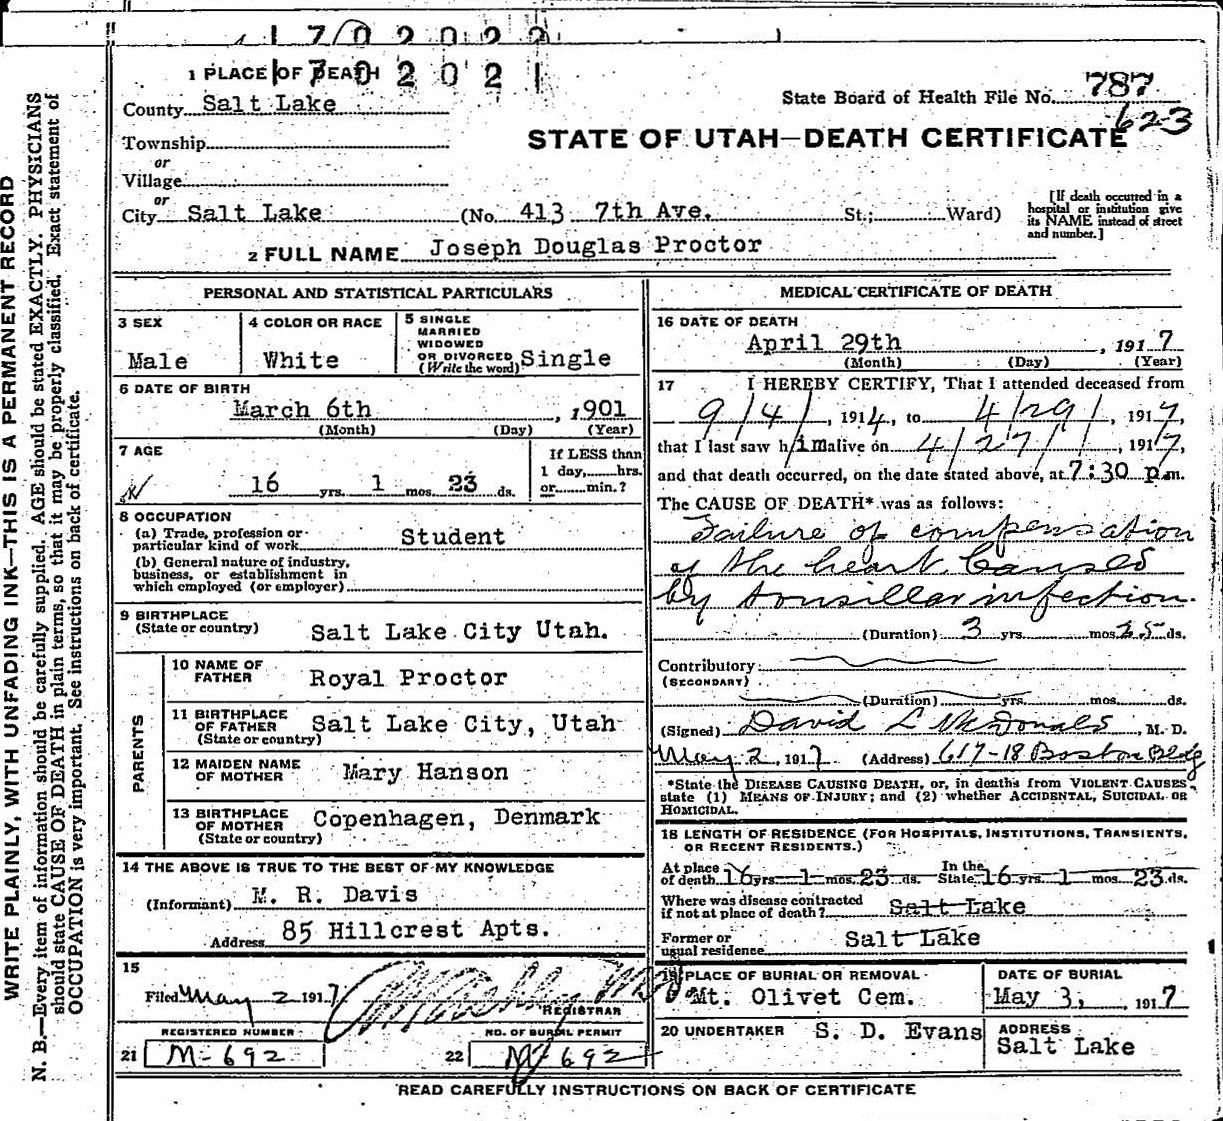 1702022
1702021
1 PLACE OF DEATH
County Salt Lake
State Board of Health File No. 787
623
Township
or
Village
or
STATE OF UTAH—DEATH CERTIFICATE
City Salt Lake (No. 413 7th Ave. St.; Ward)
[If death occurred in a
hospital or institution give
its NAME instead of street
and number.]
2 FULL NAME Joseph Douglas Proctor
PERSONAL AND STATISTICAL PARTICULARS
3 SEX
Male
4 COLOR OR RACE
White
5 SINGLE
MARRIED
WIDOWED
OR DIVORCED
(Write the word) Single
6 DATE OF BIRTH
March 6th, 1901
(Month) (Day) (Year)
7 AGE
16 yrs. 1 mos. 23 ds.
If LESS than
1 day, hrs.
or min.?
8 OCCUPATION
(a) Trade, profession or
particular kind of work Student
(b) General nature of industry,
business, or establishment in
which employed (or employer)
9 BIRTHPLACE
(State or country) Salt Lake City Utah.
PARENTS
10 NAME OF
FATHER Royal Proctor
11 BIRTHPLACE
OF FATHER
(State or country) Salt Lake City, Utah
12 MAIDEN NAME
OF MOTHER Mary Hanson
13 BIRTHPLACE
OF MOTHER
(State or country) Copenhagen, Denmark
14 THE ABOVE IS TRUE TO THE BEST OF MY KNOWLEDGE
(Informant) M. R. Davis
Address 85 Hillcrest Apts.
15
Filed May 2 1917
REGISTRAR
REGISTERED NUMBER
21 M-692
NO. OF BURIAL PERMIT
22 M 692
MEDICAL CERTIFICATE OF DEATH
16 DATE OF DEATH
April 29th, 1917
(Month) (Day) (Year)
17 I HEREBY CERTIFY, That I attended deceased from
9/4/, 1914, to 4/29/, 1917,
that I last saw h im alive on 4/27/, 1917,
and that death occurred, on the date stated above, at 7:30 p.m.
The CAUSE OF DEATH* was as follows:
Failure of compensation
of the heart caused
by tonsillar infection.
(Duration) 3 yrs. mos. 25 ds.
Contributory
(SECONDARY)
(Duration) yrs. mos. ds.
(Signed) David L McDonald, M. D.
May 2, 1917 (Address) 617-18 Boston Bldg
*State the DISEASE CAUSING DEATH, or, in deaths from VIOLENT CAUSES,
state (1) MEANS OF INJURY; and (2) whether ACCIDENTAL, SUICIDAL OR
HOMICIDAL.
18 LENGTH OF RESIDENCE (FOR HOSPITALS, INSTITUTIONS, TRANSIENTS,
OR RECENT RESIDENTS.)
At place In the
of death 16 yrs. 1 mos. 23 ds. State 16 yrs. 1 mos. 23 ds.
Where was disease contracted
if not at place of death? Salt Lake
Former or
usual residence Salt Lake
19 PLACE OF BURIAL OR REMOVAL
Mt. Olivet Cem.
DATE OF BURIAL
May 3, 1917
20 UNDERTAKER S. D. Evans
ADDRESS
Salt Lake
READ CAREFULLY INSTRUCTIONS ON BACK OF CERTIFICATE
WRITE PLAINLY, WITH UNFADING INK—THIS IS A PERMANENT RECORD
N. B.—Every item of information should be carefully supplied. AGE should be stated EXACTLY. PHYSICIANS
should state CAUSE OF DEATH in plain terms, so that it may be properly classified. Exact statement of
OCCUPATION is very important. See instructions on back of certificate.